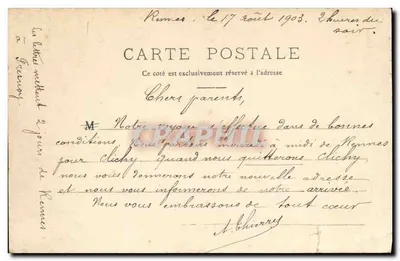 Rennes, le 17 août 1903. 2 heures du
soir.
CARTE POSTALE
Ce côté est exclusivement réservé à l'adresse
Chers parents,
M Notre voyage s'effectue dans de bonnes
conditions. Nous partons mercredi à midi de Rennes
pour Clichy. Quand nous quitterons Clichy
nous vous donnerons notre nouvelle adresse
et nous vous informerons de notre arrivée.
Nous vous embrassons de tout cœur
Les lettres mettent 2 jours de Rennes
à